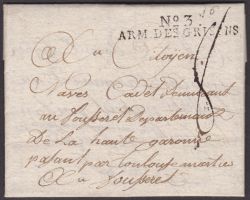 No. 3
ARM. DES GRISONS
Au Citoyen
Naves Cadet
au fousseret Departement
De La haute garonne
passant par toulouse
Au fousseret